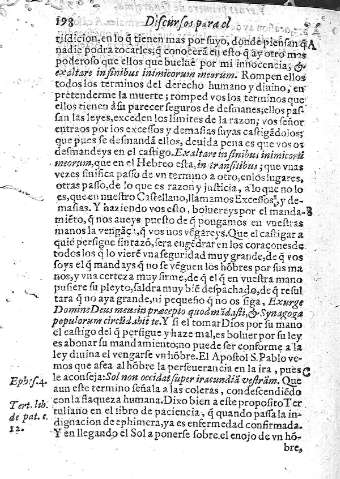 198 Discursos para el
risdicion, en lo q̃ tienen mas por suyo, donde piensan q̃ A
nadie podra tocarles; q̃ conocerã en esto q̃ ay otro mas
poderoso que ellos que buelue por mi innocencia; &
exaltare in finibus inimicorum meorum. Rompen ellos
todos los terminos del derecho humano y diuino, en
pretenderme la muerte; romped vos los terminos que
ellos tienen a su parecer seguros de desmanes; ellos pas-
san las leyes, exceden los limites de la razon; vos señor
entraos por los excessos y demasias suyas castigãdolos;
que pues se desmandã ellos, deuida pena es que vos os
desmandeys en el castigo. Exaltare in finibus inimicorũ
meorum, que en el Hebreo esta, in transilibus; que vnas
vezes sinifica passo de vn termino a otro, en los lugares,
otras passo, de lo que es razon y justicia, a lo que no lo
es, que en nuestro Castellano, llamamos Excessos, y de-
masias. Y haziendo vos esto, boluereys por el manda- B
miẽto, q̃ nos aueys puesto de q̃ pongamos en vuestras
manos la vengãça, q̃ vos nos vẽgareys. Que el castigar a
quiẽ persigue sin razõ, sera engẽdrar en los coraçones de
todos los q̃ lo vierẽ vna seguridad muy grande, de q̃ vos
soys el q̃ mandays q̃ no se vẽguen los hõbres por sus ma
nos, y vna certeza muy firme, de q̃ el q̃ en vuestra mano
pusiere su pleyto, saldra muy biẽ despachado, de q̃ resul
tara q̃ no aya grande, ni pequeño q̃ no os siga, Exurge
Domine Deus meus in præcepto quod mãdasti, & Synagoga
populorum circũdabit te. Y si el tomar Dios por su mano
el castigo del q̃ persigue y haze mal, es boluer por su ley
es abonar su mandamiento; no puede ser conforme a la
ley diuina el vengarse vn hõbre. El Apostol S. Pablo ve-
mos que afea al hõbre la perseuerancia en la ira, pues C
Ephes. 4. le aconseja: Sol non occidat super iracundiã vestrãm. Que
aun este termino señala a las coleras, condescendiẽdo
Tert. lib. con la flaqueza humana. Dixo bien a este proposito Ter
de pat. c. tuliano en el libro de paciencia, q̃ quando passa la in-
12. dignacion de ephimera, ya es enfermedad confirmada.
Y en llegando el Sol a ponerse sobre el enojo de vn hõ-
bre,